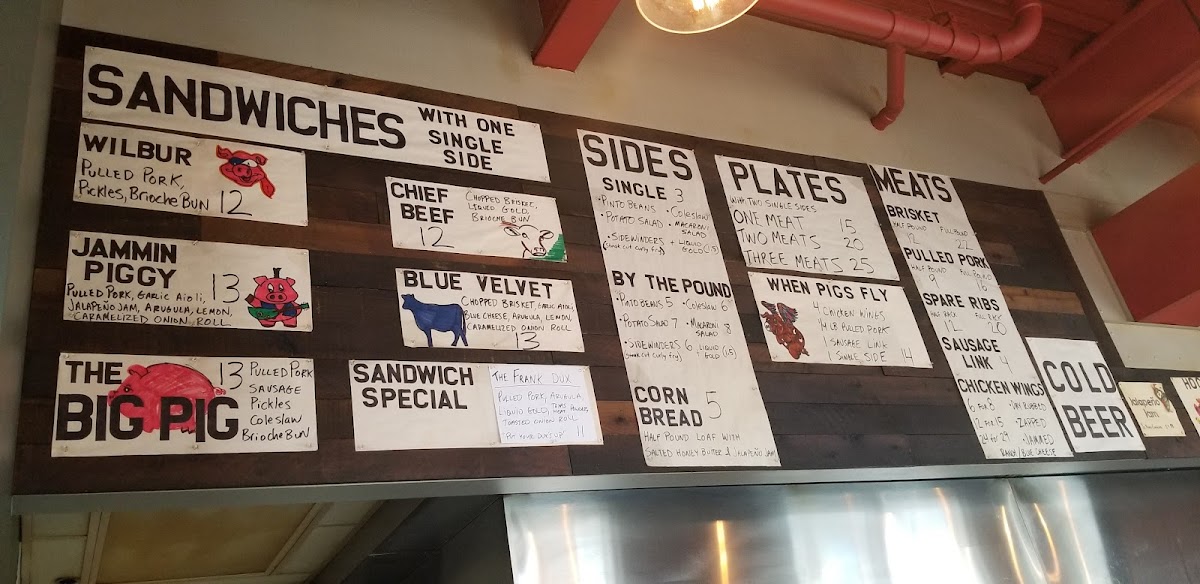 SANDWICHES WITH ONE
SINGLE
SIDE
WILBUR
PULLED PORK,
Pickles, Brioche BUN 12
JAMMIN
PIGGY 13
PULLED PORK, GARLIC AIOLI,
JALAPEÑO JAM, ARUGULA, LEMON,
CARAMELIZED ONION ROLL
THE
BIG PIG
13 PULLED PORK
SAUSAGE
Pickles
Coleslaw
Brioche BUN
CHIEF
BEEF
12
CHOPPED BRISKET,
LIQUID GOLD,
BRIOCHE BUN
BLUE VELVET
CHOPPED BRISKET, GARLIC AIOLI
BLUE CHEESE, ARUGULA, LEMON,
CARAMELIZED ONION ROLL
13
SANDWICH
SPECIAL
THE FRANK DUX
PULLED PORK, ARUGULA
LIQUID GOLD,
TOASTED ONION ROLL
11
SIDES
SINGLE 3
• PINTO BEANS • Coleslaw
• POTATO SALAD • MACARONI
SALAD
• SIDEWINDERS + LIQUID
GOLD (1.5)
BY THE POUND
• PINTO BEANS 5 • Coleslaw 6
• POTATO SALAD 7 • MACARONI
SALAD 8
• SIDEWINDERS 6 LIQUID
GOLD (1.5)
CORN
BREAD 5
HALF POUND LOAF WITH
SALTED HONEY BUTTER & JALAPEÑO JAM
PLATES
WITH TWO SINGLE SIDES
ONE MEAT 15
TWO MEATS 20
THREE MEATS 25
WHEN PIGS FLY
4 CHICKEN WINGS
1/4 LB PULLED PORK
1 SAUSAGE LINK
1 SINGLE SIDE 14
MEATS
BRISKET
HALF POUND FULL POUND
12 22
PULLED PORK
HALF POUND FULL POUND
9 16
SPARE RIBS
HALF RACK FULL RACK
12 20
SAUSAGE
LINK 4
CHICKEN WINGS
6 FOR 8 • DRY RUBBED
12 FOR 15 • ZAPPED
24 FOR 29 • JAMMED
RANCH / BLUE CHEESE
COLD
BEER
Jalapeño
Jam